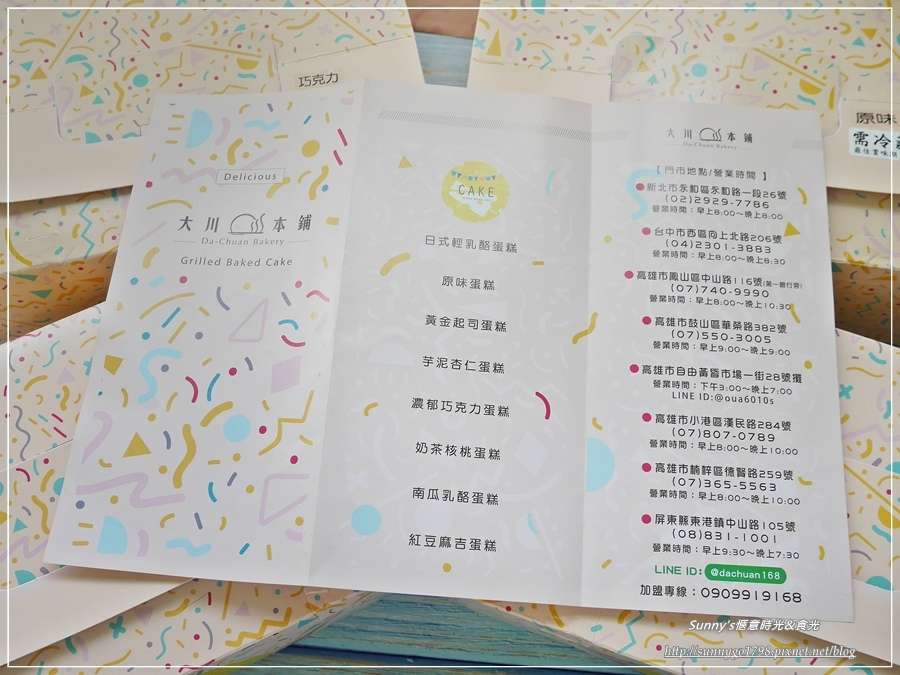 巧克力
原味
需冷
Delicious
大川本鋪
Da-Chuan Bakery
Grilled Baked Cake
CAKE
日式輕乳酪蛋糕
原味蛋糕
黃金起司蛋糕
芋泥杏仁蛋糕
濃郁巧克力蛋糕
奶茶核桃蛋糕
南瓜乳酪蛋糕
紅豆麻吉蛋糕
大川本鋪
Da-Chuan Bakery
【門市地點/營業時間】
新北市永和區永和路一段26號
(02)2929-7786
營業時間：早上8:00~晚上8:00
台中市西區向上北路206號
(04)2301-3883
營業時間：早上8:00~晚上8:30
高雄市鳳山區中山路116號(第一銀行旁)
(07)740-9990
營業時間：早上8:00~晚上10:30
高雄市鼓山區華榮路382號
(07)550-3005
營業時間：早上9:00~晚上9:00
高雄市自由黃昏市場一街28號攤
營業時間：下午3:00~晚上7:00
LINE ID:@oua6010s
高雄市小港區漢民路284號
(07)807-0789
營業時間：早上8:00~晚上10:00
高雄市楠梓區德賢路259號
(07)365-5563
營業時間：早上8:00~晚上10:00
屏東縣東港鎮中山路105號
(08)831-1001
營業時間：早上9:30~晚上7:30
LINE ID: @dachuan168
加盟專線：0909919168
Sunny's愜意時光&食光
http://sunnygo1298.pixnet.net/blog